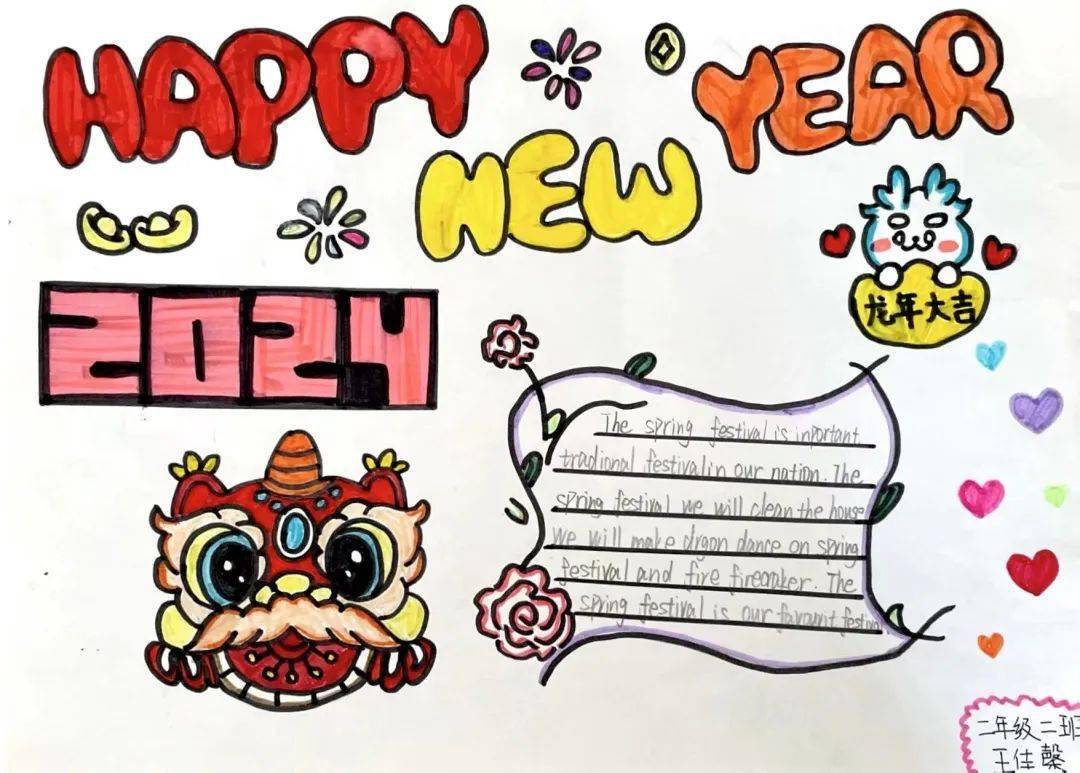 HAPPY
NEW
YEAR
龙年大吉
2024
The spring festival is inportant
tradional festival in our nation. The
spring festival we will clean the house
we will make drgon dance on spring
festival and fire firecraker. The
spring festival is our favourit festival
二年级二班
王佳馨